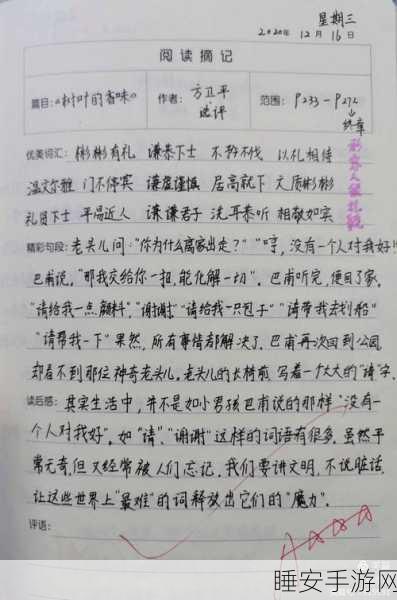 星期三
2020年 12月 16日
阅读摘记
篇目:《树叶的香味》 作者: 方卫平 选评 范围: P233-P272 终章
优美词汇: 彬彬有礼 谦恭下士 不矜不伐 以礼相待
温文尔雅 门不停宾 谦虚谨慎 居高就下 文质彬彬
礼贤下士 平易近人 谦谦君子 洗耳恭听 相敬如宾
形容人很礼貌
精彩句段: 老头儿问:"你为什么离家出走?" "哼,没有一个人对我好!"
巴甫说,"那我交给你一招,能化解一切"。巴甫听完,便回了家。
"请给我一点颜料","谢谢" "请给我一只包子" "请带我去划船"
"请帮我一下" 果然,所有事情都解决了。巴甫再次回到公园,
却看不到那位神奇老头儿。老头儿的长椅前,写着一个大大的"请"字。
读后感: 其实生活中,并不是如小男孩巴甫说的那样"没有一
个人对我好"。如"请"、"谢谢"这样的词语有很多,虽然平
常无奇,但又经常被人们忘记。我们要讲文明,不说脏话,
让这些世界上"最难"的词释放出它们的"魔力"。
评语:
睡安手游网